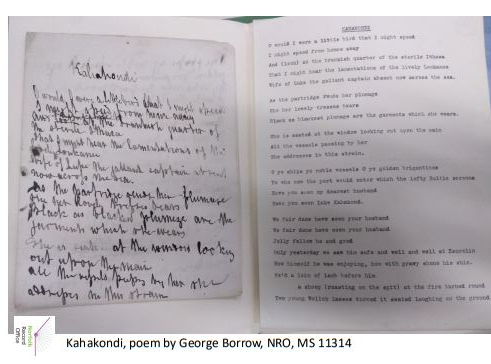 Kahakondi
O would I were a little bird that I might speed
I might speed from home away
the Turkish quarter of
the sterile Ithaca
that I might hear the lamentations of the
lovely
Wife of Luke the gallant captain absent
now across the sea
As the partridge rends her plumage
She her lovely tresses tears
Black as blackest plumage are the
garments which she wears
She is at the window looking
out upon the main
All the vessels passing by her she
addresses in this strain
KAHAKONDI
O would I were a little bird that I might speed
I might speed from home away
And (look) at the turkish quarter of the sterile Ithaca
That I might hear the lamentations of the lovely
Wife of Luke the gallant captain absent now across the sea.
As the partridge rends her plumage
She her lovely tresses tears
Black as blackest plumage are the garments which she wears.
She is seated at the window looking out upon the main
All the vessels passing by her
She addresses in this strain.
O ye ships ye noble vessels O ye golden brigantines
Ye who now the port would enter which the lofty
Have you seen my dearest husband
Have you seen Luke Kahakondi.
We fair dame have seen your husband
We fair dame have seen your husband
Jolly fellow he and good
Only yesterday we saw him safe and well and well at
How himself he was enjoying, how with gravy about his chin.
He'd a loin of lamb before him
a sheep (roasting on the spit) at the fire turned round
Two young lasses turned it seated laughing on the ground
Norfolk
Record
Office
Kahakondi, poem by George Borrow, NRO, MS 11314